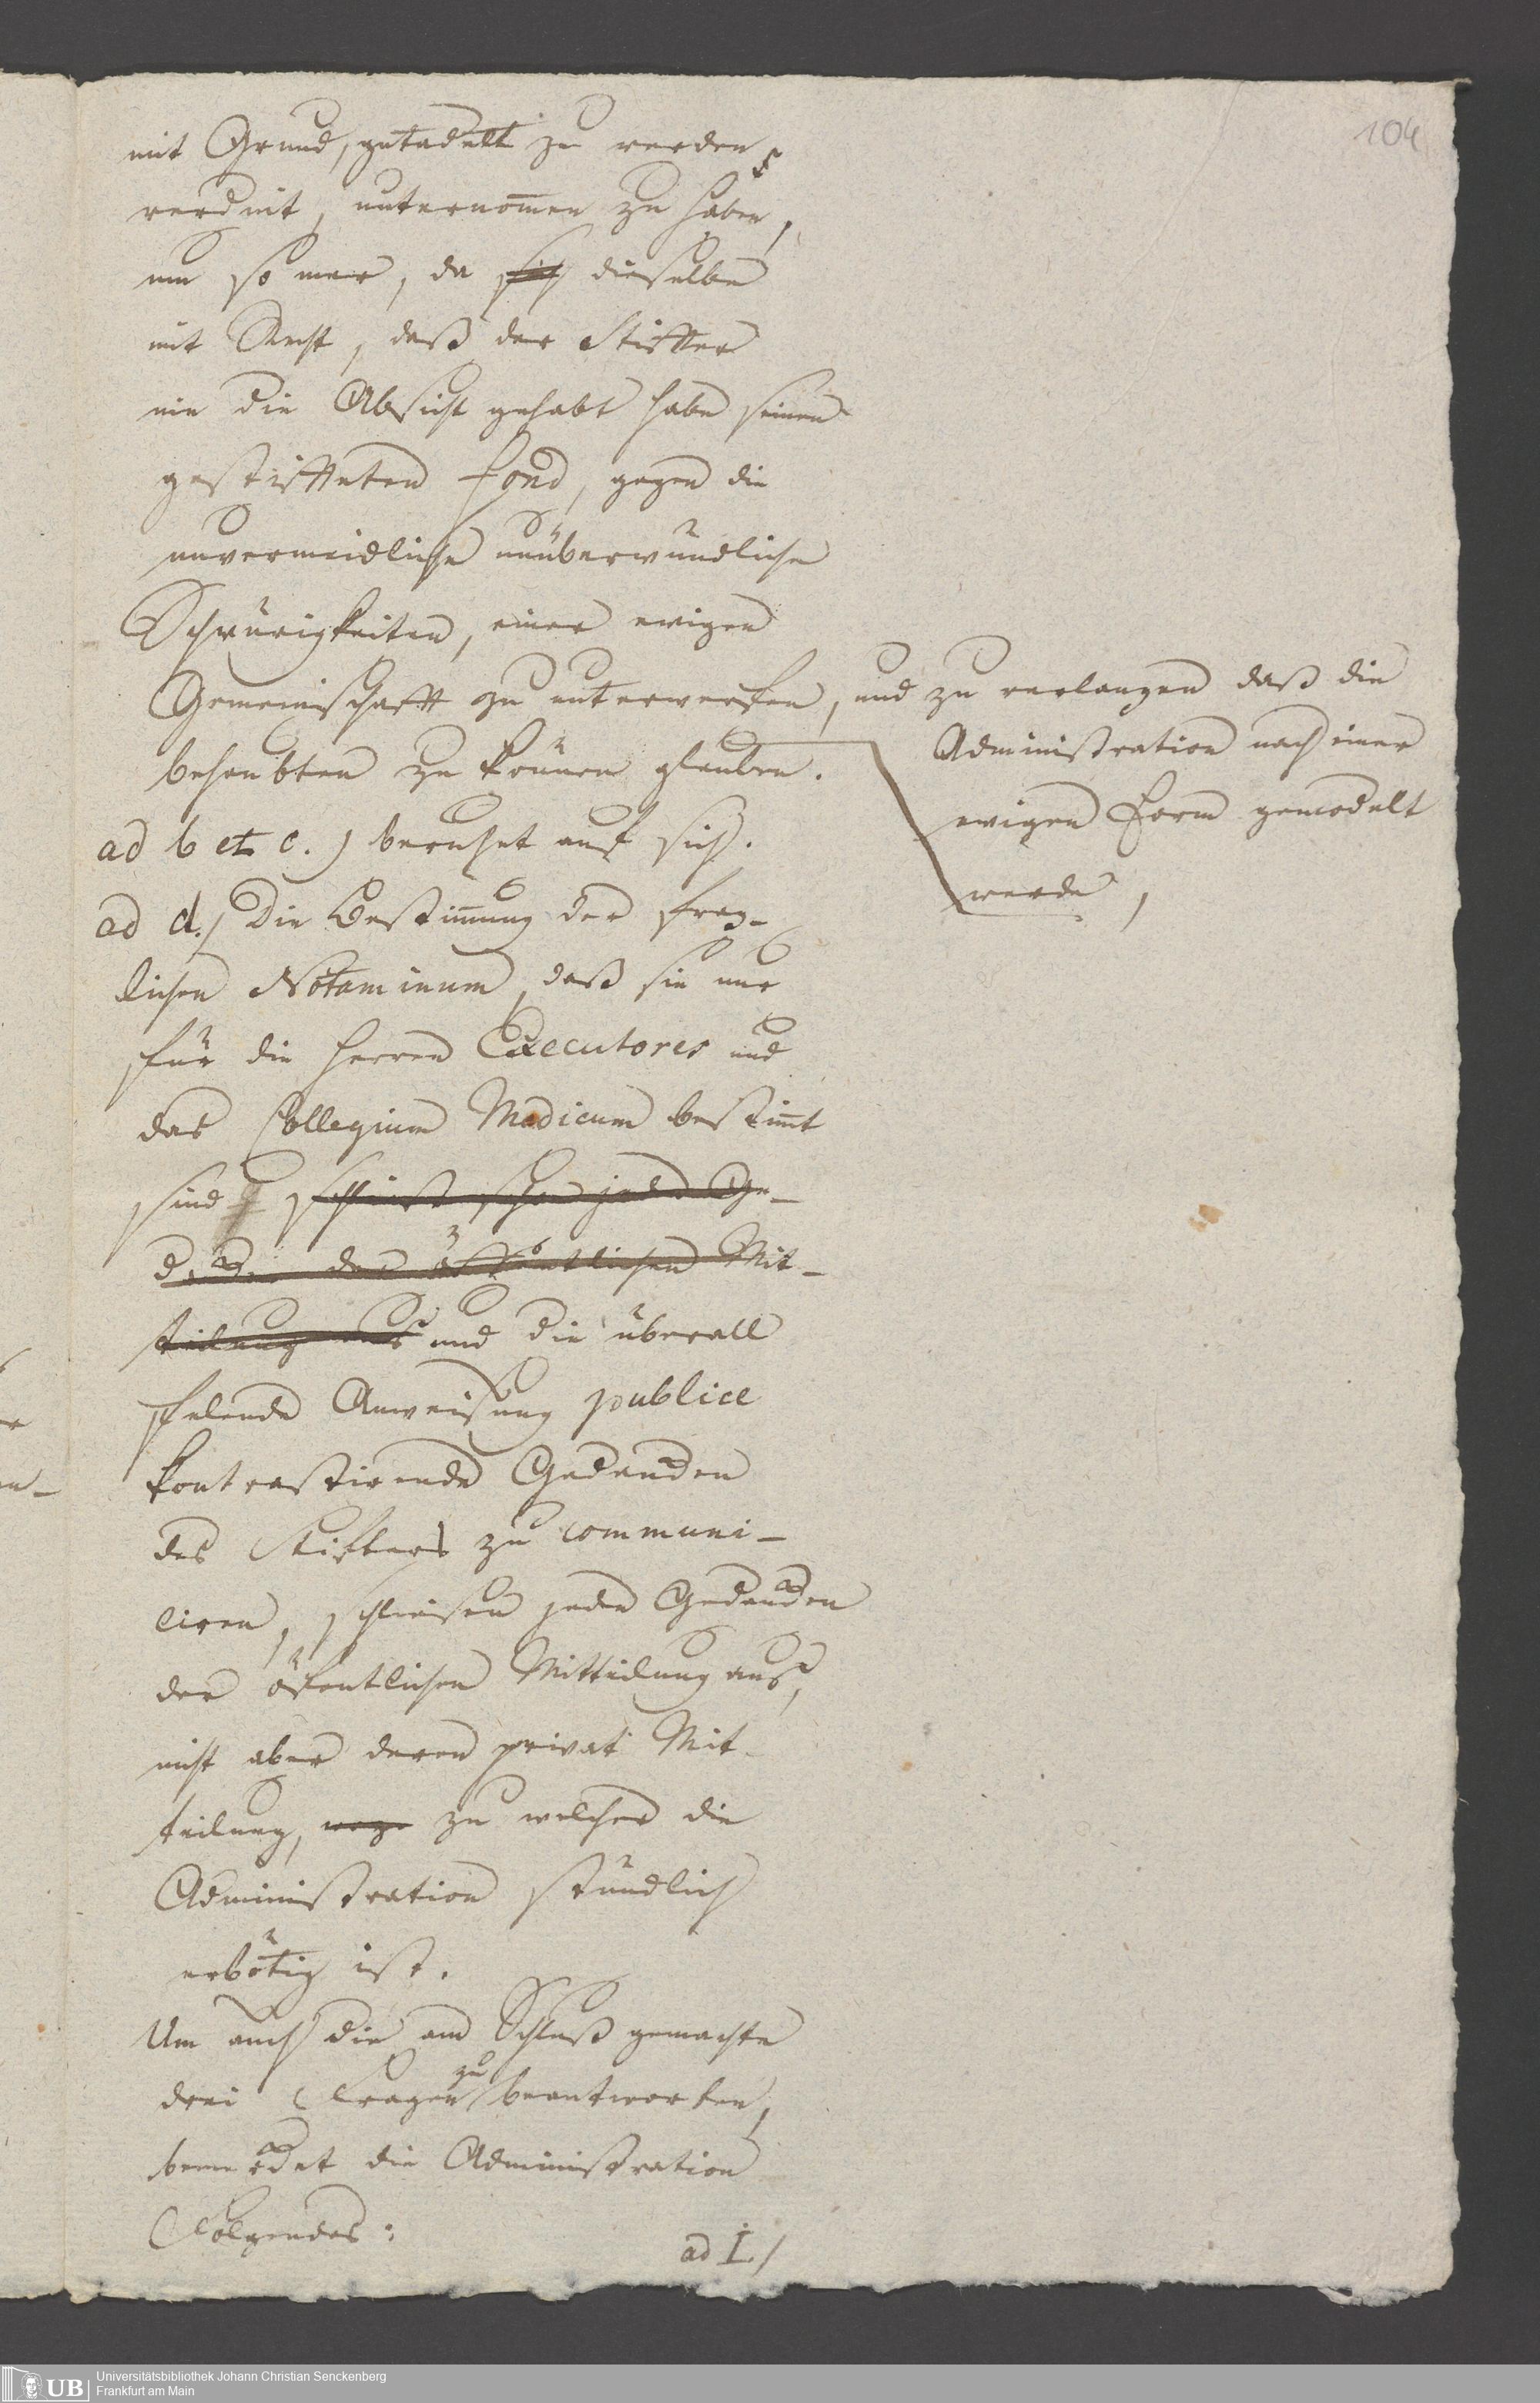 104
mit Grund, getadelt zu werden
verdient, unternom̄en zu haben,
um so mer, da sich dieselbe
mit Recht, daß der Stiffter
nie die Absicht gehabt habe seinen
gestiffteten Fond, gegen die
unvermeidliche unüberwindliche
Schwürigkeiten, einer ewigen
Gemeinschafft zu unterwerfen, und zu verlangen daß die
Administration nach einer
ewigen Form gemodelt
werde,
behaubten zu können glauben.
ad b et c.) beruhet auf sich.
ad d.) Die Bestim̄ung der frag-
lichen Notaminum, daß sie nur
für die Herren Executores und
das Collegium Medicum bestim̄t
sind schliest schon jede Ge-
der öffentlichen Mit-
teilung aus und die überall
felende Anweisung publice
kontrastirende Gedancken
des Stifters zu communi-
ciren, schliesen jeden Gedancken
der öfentlichen Mitteilung aus,
nicht aber deren privat Mit-
teilung, wozu zu welcher die
Administration stündlich
erbötig ist.
Um auch die am Schluß gemachte
drei Fragen zu beantworten,
bemercket die Administration
Folgendes:
ad I./
UB Universitätsbibliothek Johann Christian Senckenberg
Frankfurt am Main